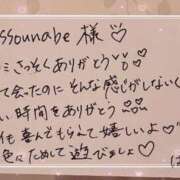 ssounabe 様♡
ミさっそくありがとう♡
て会ったのに そんな感じがしないく
い時間をありがとう
も喜んでもらえて嬉しいよ♡
色々ためして遊びましょ♡
は